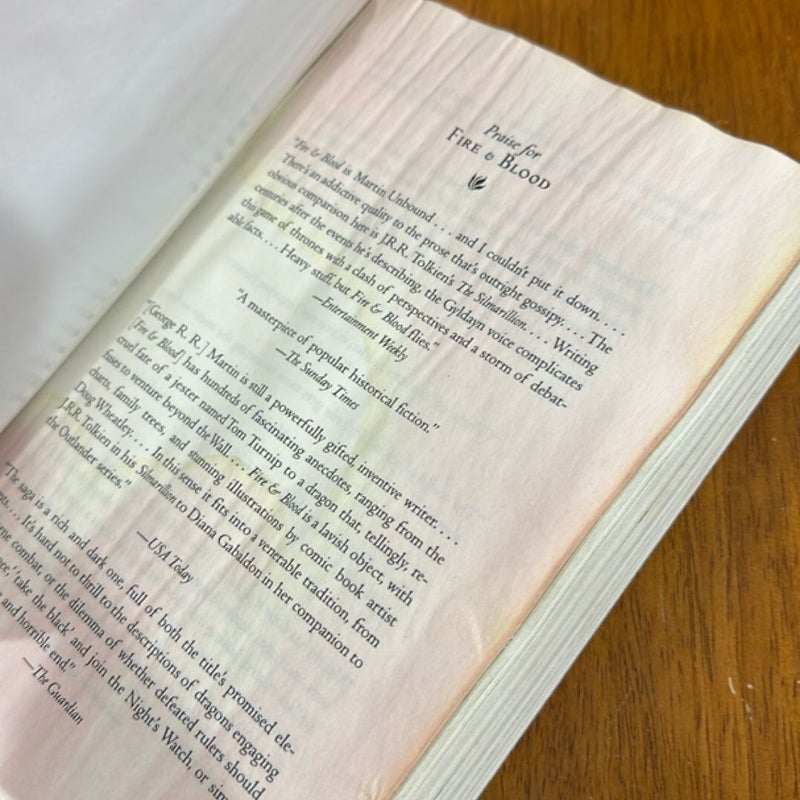 Praise for
FIRE & BLOOD
"Fire & Blood is Martin Unbound . . . and I couldn't put it down. . . .
There's an addictive quality to the prose that's outright gossipy. . . . The
obvious comparison here is J.R.R. Tolkien's The Silmarillion. . . . Writing
centuries after the events he's describing, the Gyldayn voice complicates
this game of thrones with a clash of perspectives and a storm of debat-
able facts. . . . Heavy stuff, but Fire & Blood flies."
—Entertainment Weekly
"A masterpiece of popular historical fiction."
—The Sunday Times
"[George R. R.] Martin is still a powerfully gifted, inventive writer. . . .
[Fire & Blood] has hundreds of fascinating anecdotes, ranging from the
cruel fate of a jester named Tom Turnip to a dragon that, tellingly, re-
fuses to venture beyond the Wall. . . . Fire & Blood is a lavish object, with
charts, family trees, and stunning illustrations by comic book artist
Doug Wheatley. . . . In this sense it fits into a venerable tradition, from
J.R.R. Tolkien in his Silmarillion to Diana Gabaldon in her companion to
the Outlander series."
—USA Today
"The saga is a rich and dark one, full of both the title's promised ele-
. . . It's hard not to thrill to the descriptions of dragons engaging
combat, or the dilemma of whether defeated rulers should
'take the black' and join the Night's Watch, or
and horrible end."
—The Guardian